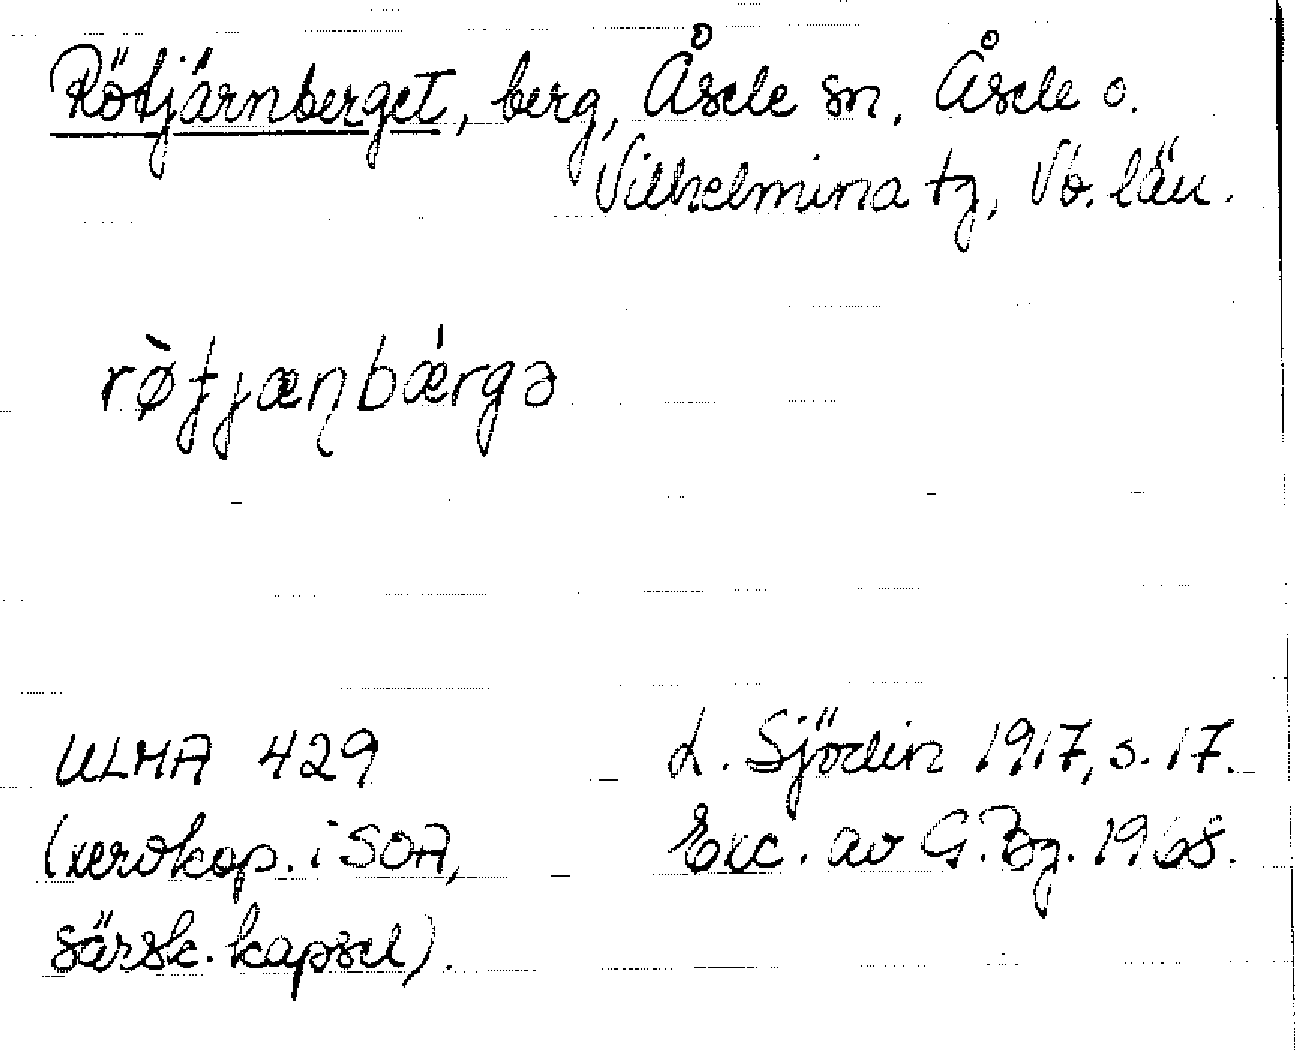 Rötjärnberget, berg, Åsele sn, Åsele o.
Vilhelmina tg, Vb. län.
rø̀ʈɟæɳbǽrgə
ULMA 429
(xerokop. i SOA,
särsk. kapsel).
L. Sjödin 1917, s. 17.
Exc. av G. Bg. 1968.